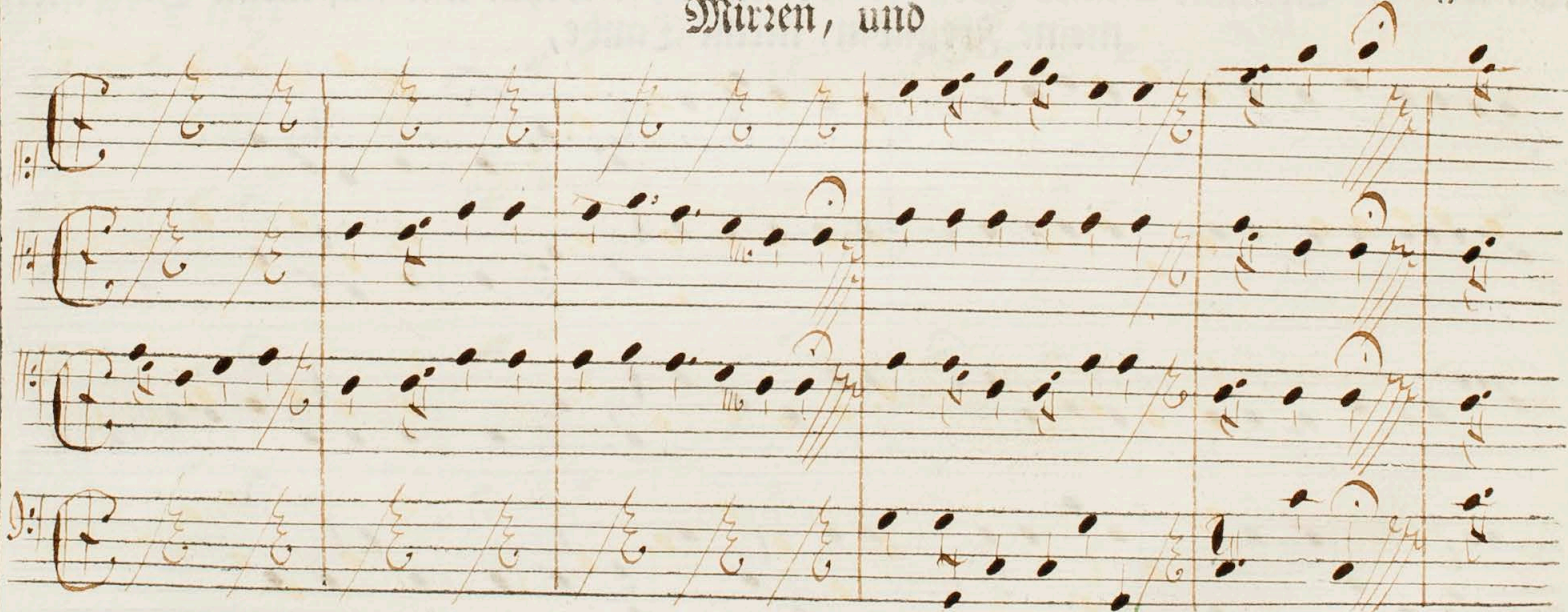 Mirren, und